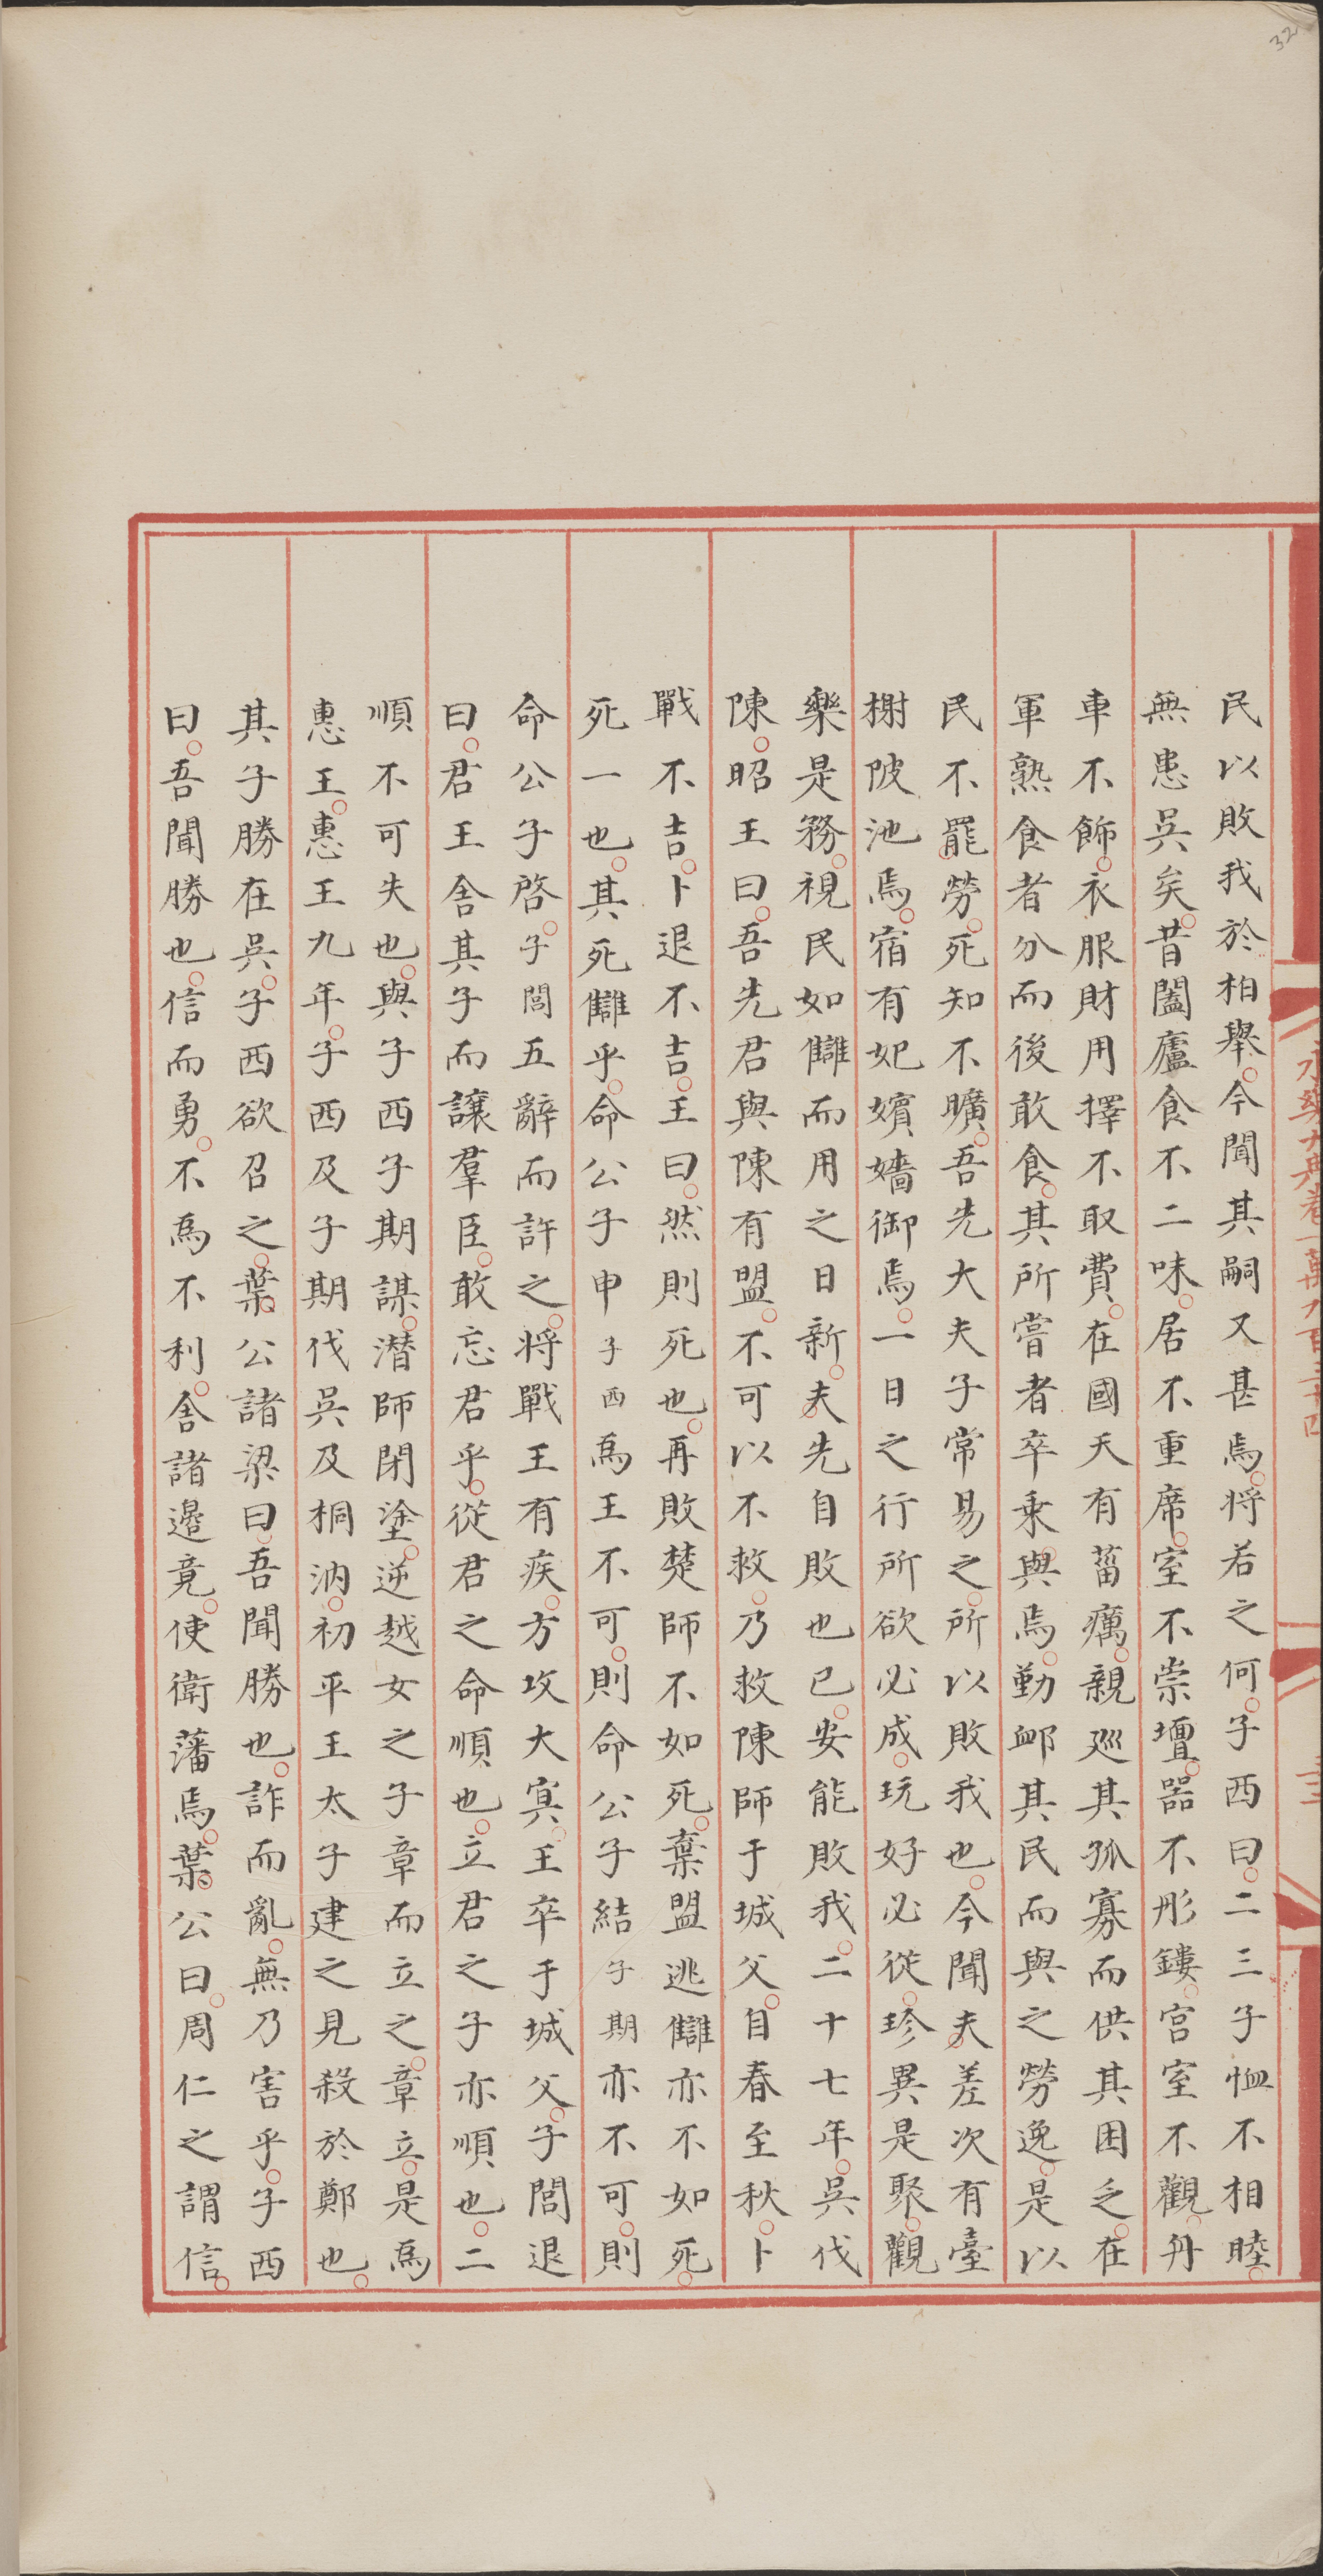 32
民以敗我於相舉今聞其嗣又甚焉将若之何子西曰二三子恤不相睦
無患吳矣昔闔廬食不二味居不重席室不崇壇器不彤鏤宫室不觀舟
車不飾衣服財用擇不取費在國天有菑癘親廵其孤寡而供其困乏在
軍熟食者分而後敢食其所嘗者卒乗與焉勤卹其民而與之勞逸是以
民不罷勞死知不曠吾先大夫子常易之所以敗我也今聞夫差次有臺
榭陂池焉宿有妃嬪嬙御焉一日之行所欲必成玩好必從珍異是聚觀
樂是務視民如讎而用之日新夫先自敗也已安能敗我二十七年吳伐
陳昭王曰吾先君與陳有盟不可以不救乃救陳師于城父自春至秋卜
戰不吉卜退不吉王曰然則死也再敗楚師不如死棄盟逃讎亦不如死
死一也其死讎乎命公子申子西爲王不可則命公子結子期亦不可則
命公子啓子閭五辭而許之將戰王有疾方攻大㝠王卒于城父子閭退
曰君王舍其子而讓羣臣敢忘君乎從君之命順也立君之子亦順也二
順不可失也與子西子期謀潛師閉塗逆越女之子章而立之章立是爲
惠王惠王九年子西及子期伐吳及桐汭初平王太子建之見殺於鄭也
其子勝在吳子西欲召之葉公諸梁曰吾聞勝也詐而亂無乃害乎子西
曰吾聞勝也信而勇不爲不利舍諸邉竟使衛藩焉葉公曰周仁之謂信